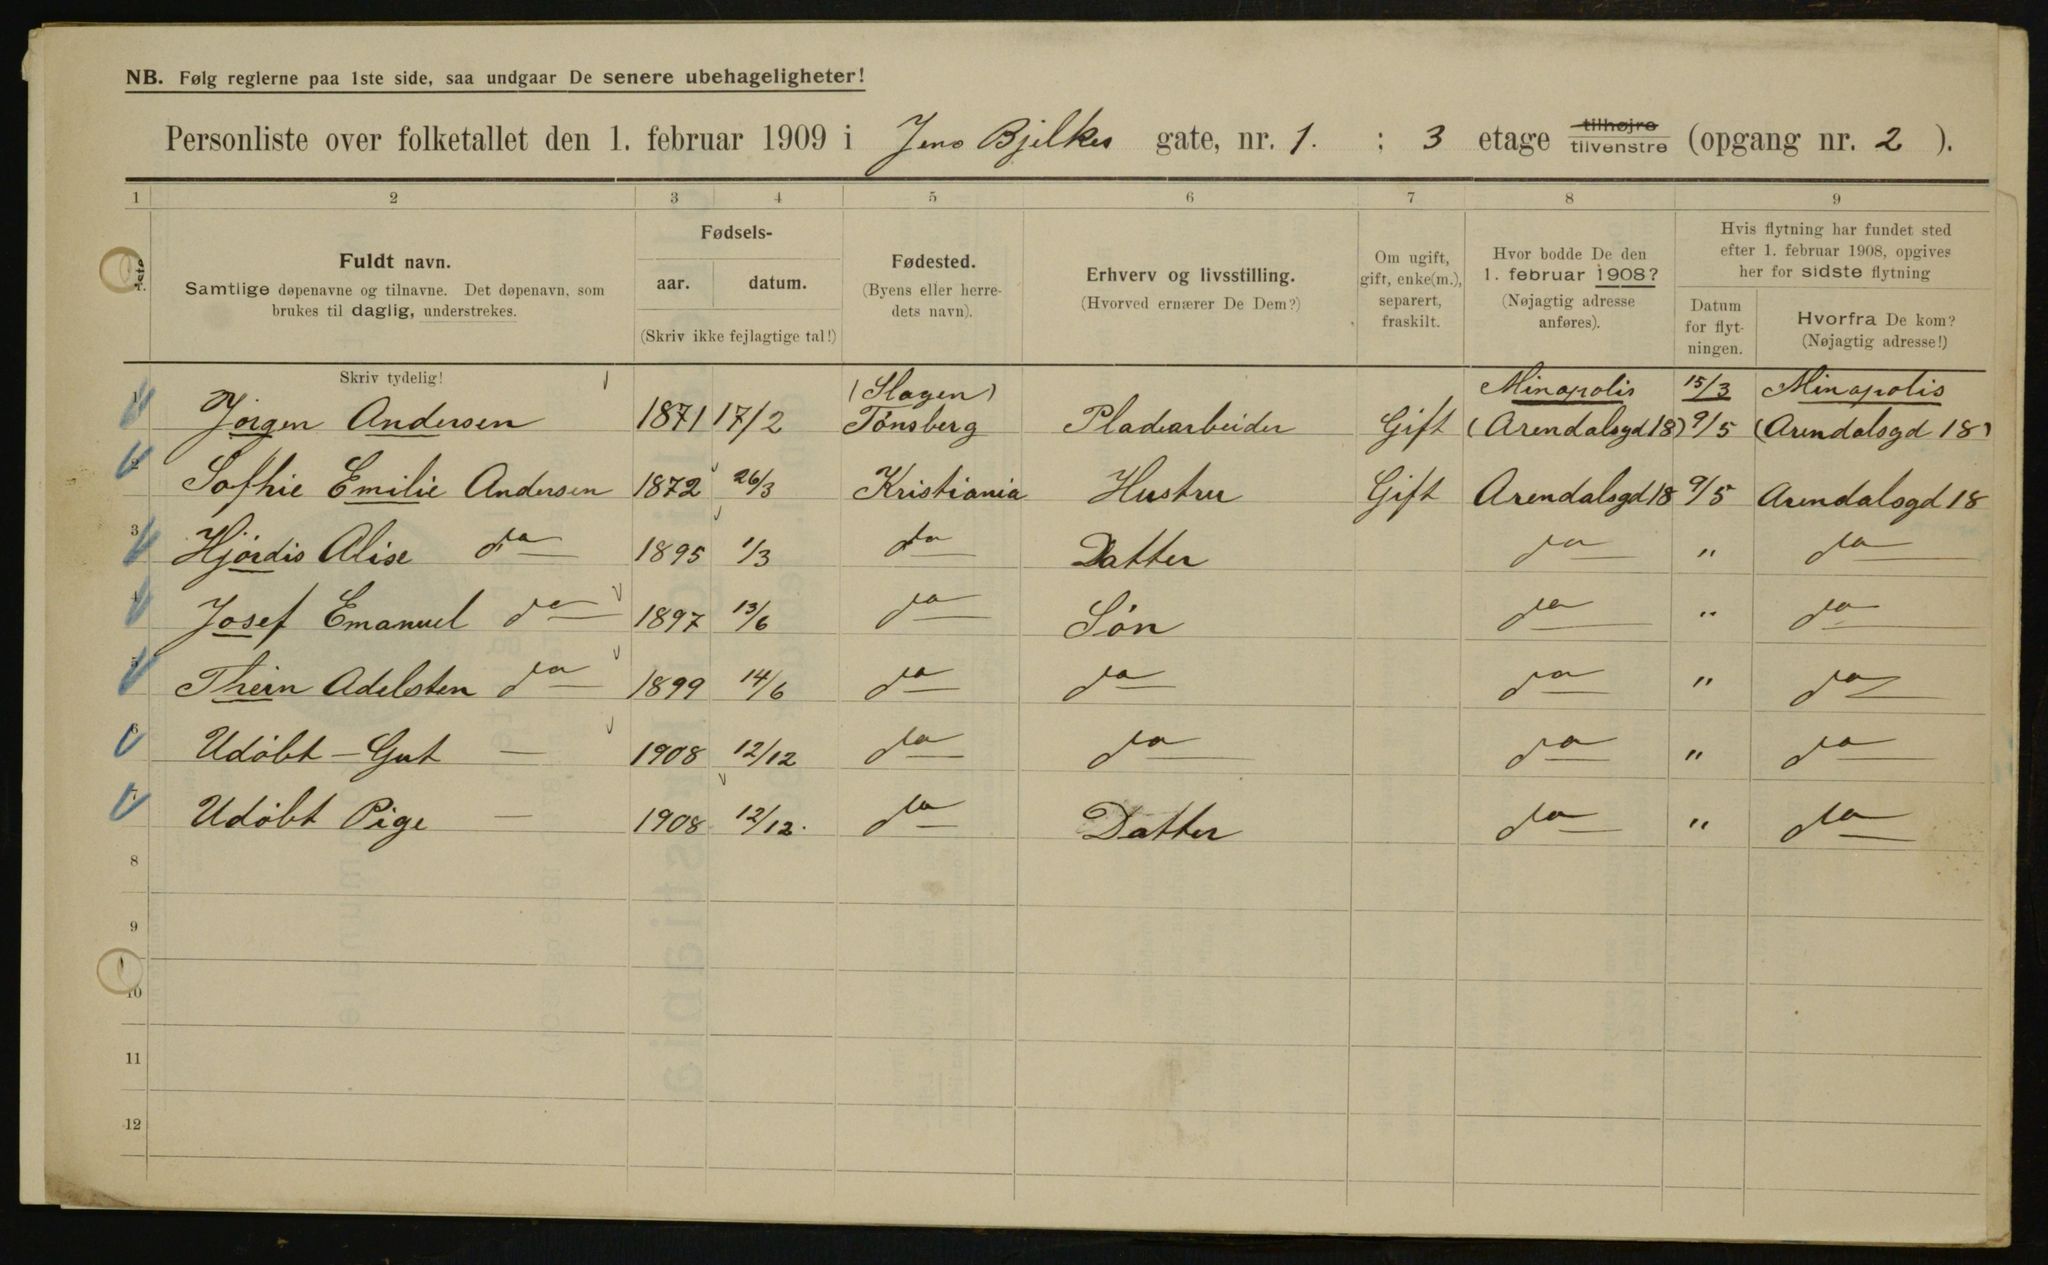 NB. Følg reglerne paa 1ste side, saa undgaar De senere ubehageligheter!
Personliste over folketallet den 1. februar 1909 i Jens Bjelkes gate, nr. 1. : 3 etage tilhøjre tilvenstre (opgang nr. 2 ).
1 2 3 4 5 6 7 8 9
Fuldt navn.
Samtlige døpenavne og tilnavne. Det døpenavn, som
brukes til daglig, understrekes.
Skriv tydelig!
Fødsels-
aar. datum.
(Skriv ikke fejlagtige tal!)
Fødested.
(Byens eller herre-
dets navn).
Erhverv og livsstilling.
(Hvorved ernærer De Dem?)
Om ugift,
gift, enke(m.),
separert,
fraskilt.
Hvor bodde De den
1. februar 1908?
(Nøjagtig adresse
anføres).
Hvis flytning har fundet sted
efter 1. februar 1908, opgives
her for sidste flytning
Datum
for flyt-
ningen.
Hvorfra De kom?
(Nøjagtig adresse!)
(Slagen) Minapolis 15/3 Minapolis
1 Jørgen Andersen 1871 17/2 Tønsberg Pladearbeider Gift (Arendalsgd 18) 9/5 (Arendalsgd 18)
2 Sofhie Emilie Andersen 1872 26/3 Kristiania Hustru Gift Arendalsgd 18 9/5 Arendalsgd 18
3 Hjørdis Alise do 1895 1/3 do Datter do " do
4 Josef Emanuel do 1897 13/6 do Søn do " do
5 Thein Adelsten do 1899 14/6 do do do " do
6 Udøbt - Gut — 1908 12/12 do do do " do
7 Udøbt Pige — 1908 12/12. do Datter do " do
8
9
10
11
12